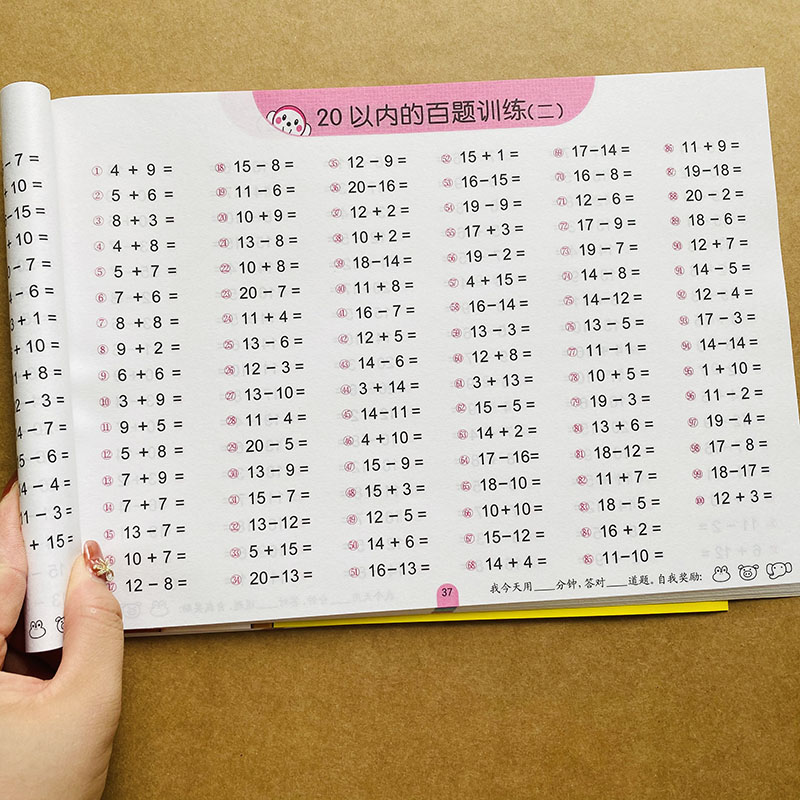 - 7 =
+ 10 =
-15 =
+ 10 =
- 7 =
- 6 =
3 + 1 =
+ 10 =
1 + 8 =
2 - 3 =
- 7 =
5 - 6 =
4 - 4 =
1 - 3 =
+ 15 =
20 以内的百题训练(二)
① 4 + 9 =
② 5 + 6 =
③ 8 + 3 =
④ 4 + 8 =
⑤ 5 + 7 =
⑥ 7 + 6 =
⑦ 8 + 8 =
⑧ 9 + 2 =
⑨ 6 + 6 =
⑩ 3 + 9 =
⑪ 9 + 5 =
⑫ 5 + 8 =
⑬ 7 + 9 =
⑭ 7 + 7 =
⑮ 13 - 7 =
⑯ 10 + 7 =
⑰ 12 - 8 =
⑱ 15 - 8 =
⑲ 11 - 6 =
⑳ 10 + 9 =
㉑ 13 - 8 =
㉒ 10 + 8 =
㉓ 20 - 7 =
㉔ 11 + 4 =
㉕ 13 - 6 =
㉖ 12 - 3 =
㉗ 13-10 =
㉘ 11 - 4 =
㉙ 20 - 5 =
㉚ 13 - 9 =
㉛ 15 - 7 =
㉜ 13-12 =
㉝ 5 + 15 =
㉞ 20-13 =
㉟ 12 - 9 =
㊱ 20-16 =
㊲ 12 + 2 =
㊳ 10 + 2 =
㊴ 18-14 =
㊵ 11 + 8 =
㊶ 16 - 7 =
㊷ 12 + 5 =
㊸ 14 - 6 =
㊹ 3 + 14 =
㊺ 14-11 =
㊻ 4 + 10 =
㊼ 15 - 9 =
㊽ 15 + 3 =
㊾ 12 - 5 =
㊿ 14 + 6 =
51 16-13 =
52 15 + 1 =
53 16-15 =
54 19 - 9 =
55 17 + 3 =
56 19 - 2 =
57 4 + 15 =
58 16-14 =
59 13 - 3 =
60 12 + 8 =
61 3 + 13 =
62 15 - 5 =
63 14 + 2 =
64 17 - 16=
65 18-10 =
66 10+10 =
67 15-12 =
68 14 + 4 =
69 17-14 =
70 16 - 8 =
71 12 - 6 =
72 17 - 9 =
73 19 - 7 =
74 14 - 8 =
75 14-12 =
76 13 - 5 =
77 11 - 1 =
78 10 + 5 =
79 19 - 3 =
80 13 + 6 =
81 18-12 =
82 11 + 7 =
83 18 - 5 =
84 16 + 2 =
85 11-10 =
86 11 + 9 =
87 19-18 =
88 20 - 2 =
89 18 - 6 =
90 12 + 7 =
91 14 - 5 =
92 12 - 4 =
93 17 - 3 =
94 14-14 =
95 1 + 10 =
96 11 - 2 =
97 19 - 4 =
98 17 - 8 =
99 18-17 =
100 12 + 3 =
37
我今天用____分钟,答对____道题。自我奖励: